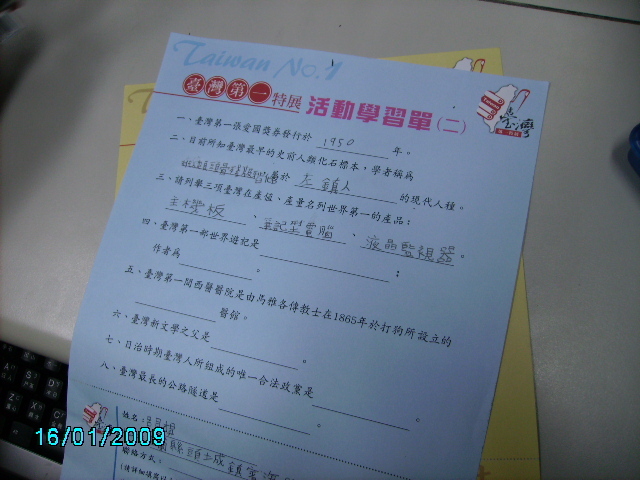 Taiwan No.1
臺灣第一特展 活動學習單(二)
一、臺灣第一張愛國獎券發行於 1950 年。
二、目前所知臺灣最早的史前人類化石標本,學者稱為
屬於 左鎮人 的現代人種。
三、請列舉三項臺灣在產值、產量名列世界第一的產品:
主機板 、 筆記型電腦 、 液晶監視器 。
四、臺灣第一部世界遊記是 ;
作者為 。
五、臺灣第一間西醫醫院是由馬雅各傳教士在1865年於打狗所設立的
醫館。
六、臺灣新文學之父是 。
七、日治時期臺灣人所組成的唯一合法政黨是 。
八、臺灣最長的公路隧道是 。
姓名:
縣頭城鎮
聯絡方式:
16/01/2009